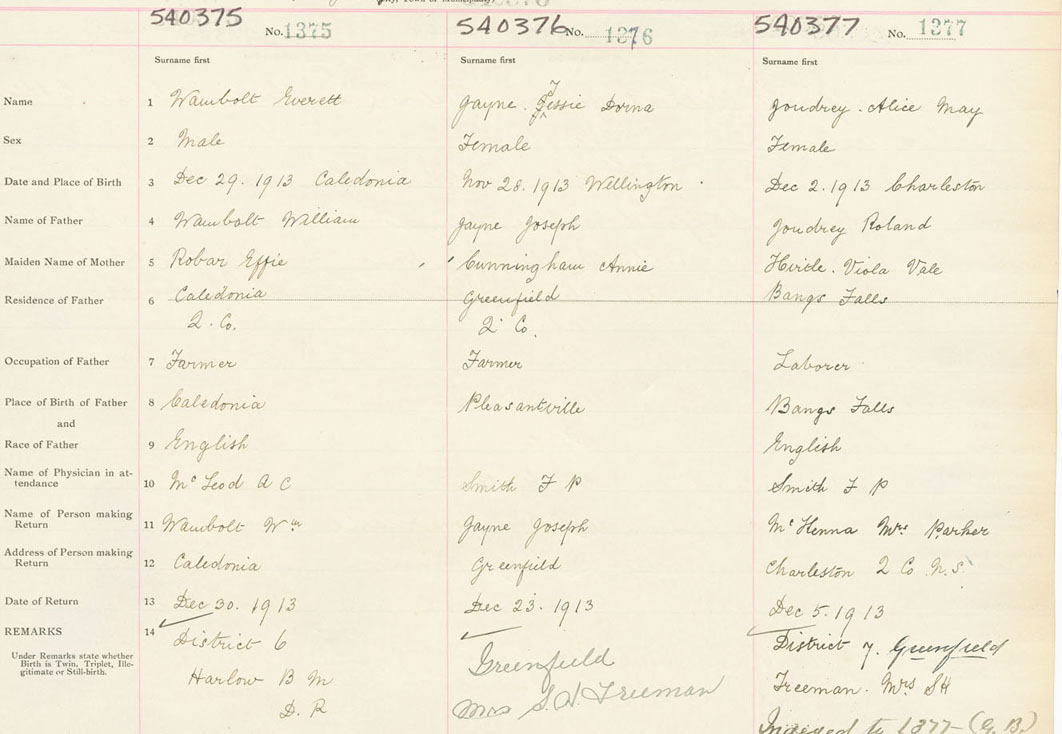 540375 No. 1375 540376 No. 1376 540377 No. 1377
Surname first Surname first Surname first
Name 1 Wambolt Everett Jayne. Jessie Dorna Joudrey. Alice May
Sex 2 Male Female Female
Date and Place of Birth 3 Dec 29. 1913 Caledonia Nov 28. 1913 Wellington Dec 2. 1913 Charleston
Name of Father 4 Wambolt William Jayne Joseph Joudrey Roland
Maiden Name of Mother 5 Robar Effie Cunningham Annie Hirtle. Viola Vale
Residence of Father 6 Caledonia Greenfield Bangs Falls
Q. Co. Q. Co.
Occupation of Father 7 Farmer Farmer Laborer
Place of Birth of Father 8 Caledonia Pleasantville Bangs Falls
and
Race of Father 9 English English
Name of Physician in at-
tendance 10 Mc Leod A C Smith F P Smith F P
Name of Person making
Return 11 Wambolt Wm Jayne Joseph Mc Kenna Mrs. Parker
Address of Person making
Return 12 Caledonia Greenfield Charleston Q Co N.S.
Date of Return 13 Dec 30. 1913 Dec 23. 1913 Dec 5. 1913
REMARKS 14 District 6 Greenfield District 7. Greenfield
Under Remarks state whether
Birth is Twin, Triplet, Ille-
gitimate or Still-birth.
Harlow B M Mrs S. H Freeman Freeman. Mrs SH
D. R
Indexed to 1377 (G. B.)